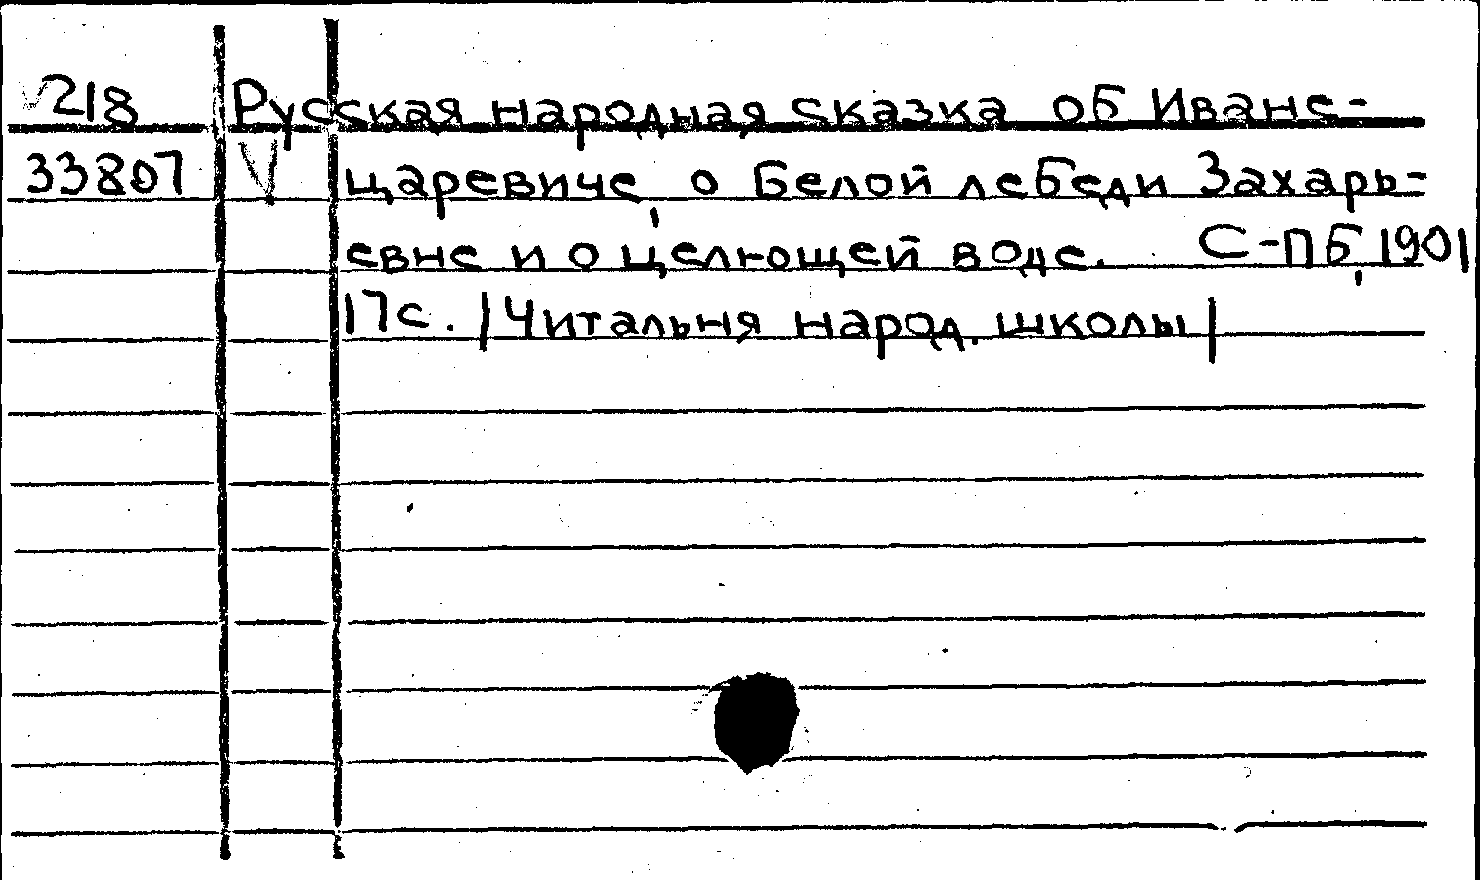 218 Русская народная сказка об Иване-
33807 царевиче, о Белой лебеди Захарь-
евне и о целющей воде. С-ПБ, 1901
17с. |Читальня народ. школы|